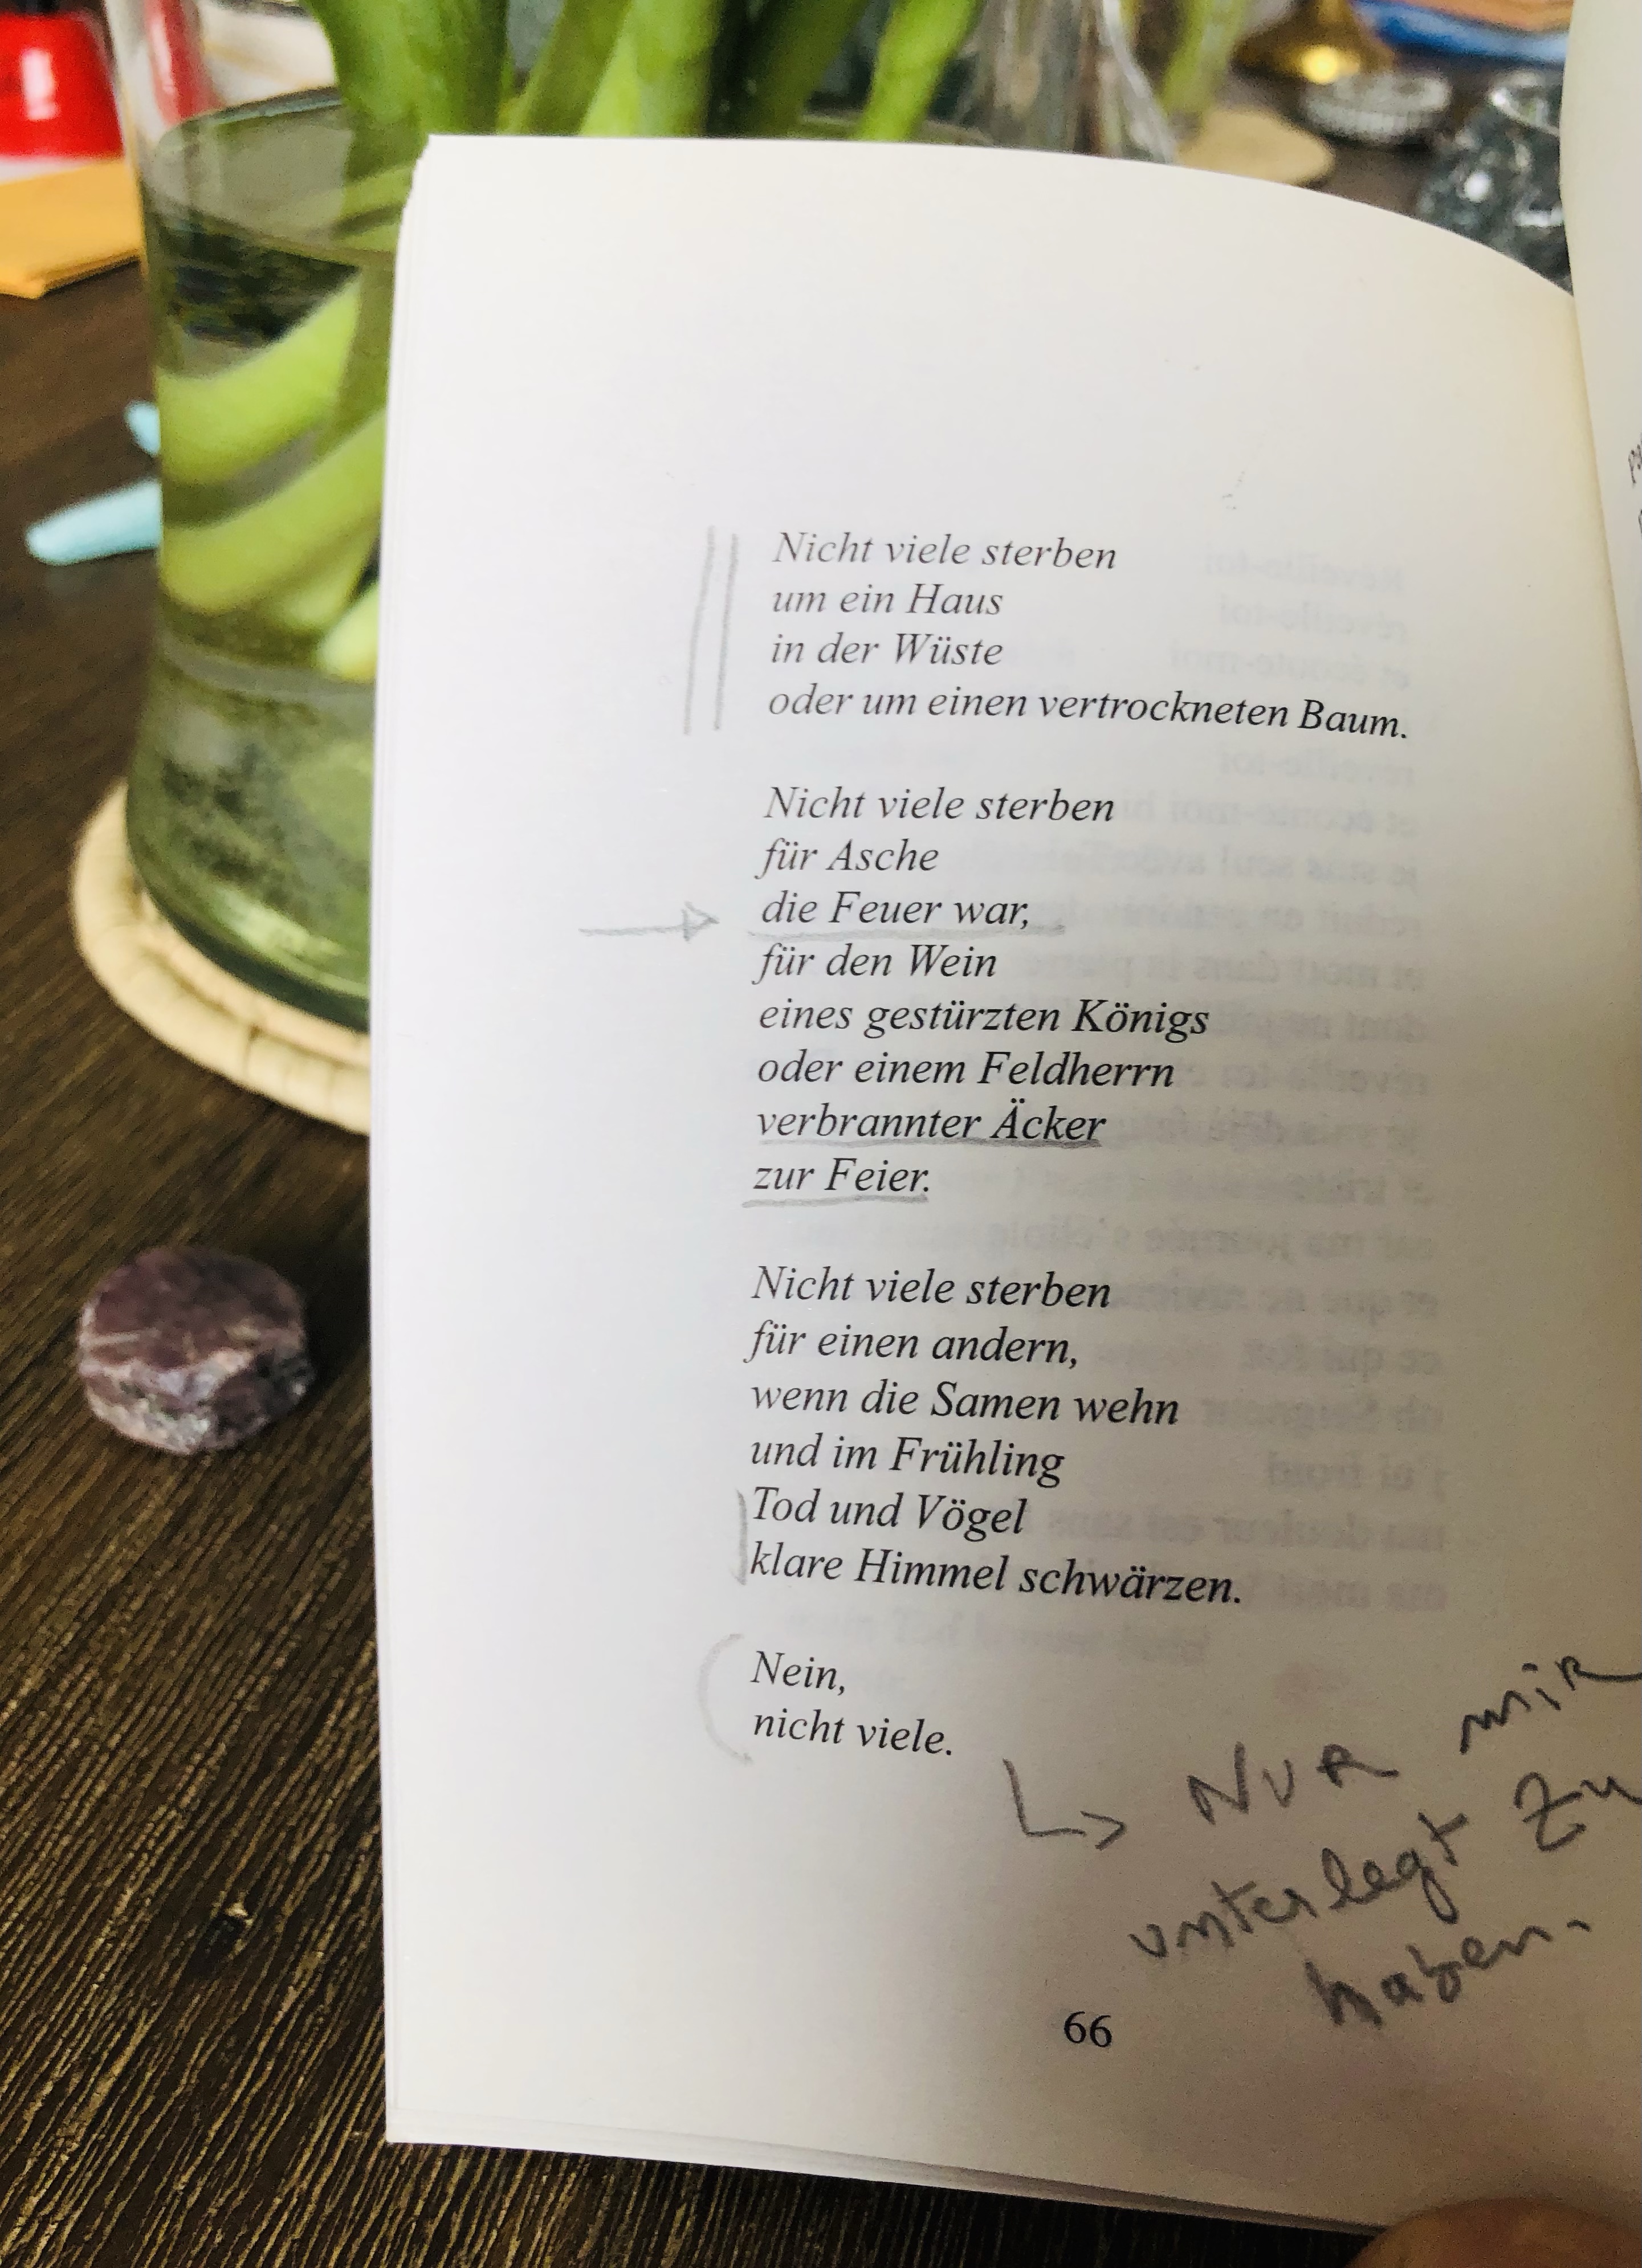 Nicht viele sterben
um ein Haus
in der Wüste
oder um einen vertrockneten Baum.
Nicht viele sterben
für Asche
die Feuer war,
für den Wein
eines gestürzten Königs
oder einem Feldherrn
verbrannter Äcker
zur Feier.
Nicht viele sterben
für einen andern,
wenn die Samen wehn
und im Frühling
Tod und Vögel
klare Himmel schwärzen.
Nein,
nicht viele.
Nur mir
unterlegt zu
haben.
66